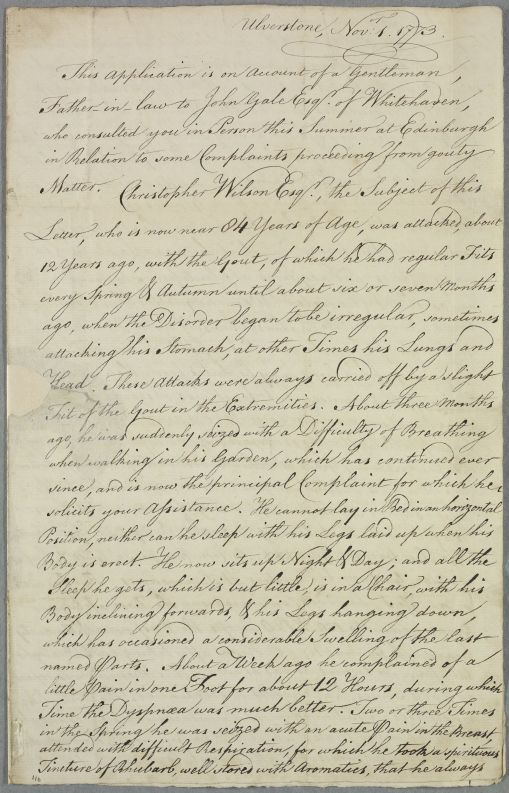 Ulverstone, Novr. 1. 1773.
This Application is on Account of a Gentleman,
Father-in-law to John Gale Esqr. of Whitehaven,
who consulted you in Person this Summer at Edinburgh
in Relation to some Complaints proceeding from gouty
Matter. Christopher Wilson Esqr., the Subject of this
Letter, who is now near 84 Years of Age, was attacked, about
12 Years ago, with the Gout, of which he had regular Fits
every Spring & Autumn until about six or seven Months
ago, when the Disorder began to be irregular, sometimes
attacking his Stomach, at other Times his Lungs and
Head. These Attacks were always carried off by a slight
Fit of the Gout in the Extremities. About three Months
ago, he was suddenly seized with a Difficulty of Breathing
when walking in his Garden, which has continued ever
since, and is now the principal Complaint for which he
solicits your Assistance. He cannot lay in Bed in an horizontal
Position, neither can he sleep with his Legs laid up when his
Body is erect. He now sits up Night & Day; and all the
Sleep he gets, which is but little, is in a Chair, with his
Body inclining forwards, & his Legs hanging down,
which has occasioned a considerable Swelling of the last
named Parts. About a Week ago he complained of a
little Pain in one Foot for about 12 Hours, during which
Time the Dyspnœa was much better. Two or three Times
in the Spring he was seized with an acute Pain in the Breast
attended with difficult Respiration, for which he took a spirituous
Tincture of Rhubarb, well stored with Aromatics, that he always